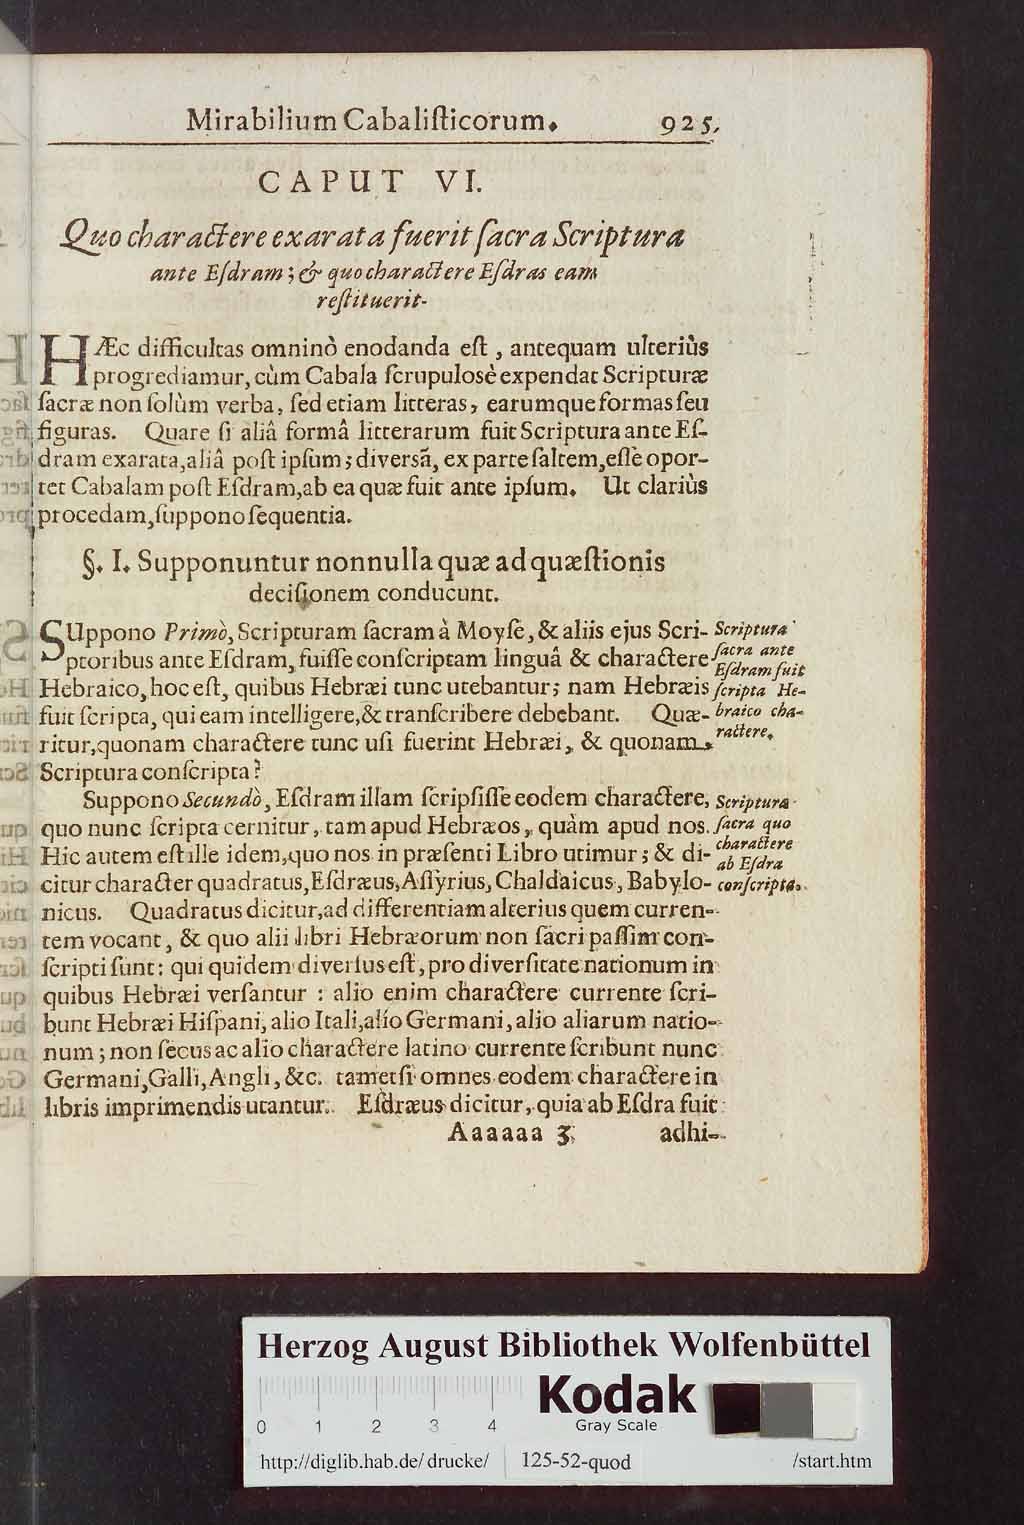 Mirabilium Cabaliſticorum. 925.
CAPUT VI.
Quo charactere exarata fuerit ſacra Scriptura
ante Eſdram; & quo charactere Eſdras eam
reſtituerit.
HÆc difficultas omninò enodanda eſt, antequam ulteriùs
progrediamur, cùm Cabala ſcrupulosè expendat Scripturæ
ſacræ non ſolùm verba, ſed etiam litteras, earumque formas ſeu
figuras. Quare ſi aliâ formâ litterarum fuit Scriptura ante Eſ-
dram exarata, aliâ poſt ipſum; diversā, ex parte ſaltem, eſſe opor-
tet Cabalam poſt Eſdram, ab ea quæ fuit ante ipſum. Ut clariùs
procedam, ſuppono ſequentia.
§. I. Supponuntur nonnulla quæ ad quæſtionis
deciſionem conducunt.
SUppono Primò, Scripturam ſacram à Moyſe, & aliis ejus Scri-
ptoribus ante Eſdram, fuiſſe conſcriptam linguâ & charactere
Hebraico, hoc eſt, quibus Hebræi tunc utebantur; nam Hebræis
fuit ſcripta, qui eam intelligere, & tranſcribere debebant. Quæ-
ritur, quonam charactere tunc uſi fuerint Hebræi, & quonam
Scriptura conſcripta?
Scriptura
ſacra ante
Eſdram fuit
ſcripta He-
braico cha-
ractere.
Suppono Secundò, Eſdram illam ſcripſiſſe eodem charactere,
quo nunc ſcripta cernitur, tam apud Hebræos, quàm apud nos.
Hic autem eſt ille idem, quo nos in præſenti Libro utimur; & di-
citur character quadratus, Eſdræus, Aſſyrius, Chaldaicus, Babylo-
nicus. Quadratus dicitur, ad differentiam alterius quem curren-
tem vocant, & quo alii libri Hebræorum non ſacri paſſim con-
ſcripti ſunt: qui quidem diverſus eſt, pro diverſitate nationum in
quibus Hebræi verſantur: alio enim charactere currente ſcri-
bunt Hebræi Hiſpani, alio Itali, alio Germani, alio aliarum natio-
num; non ſecus ac alio charactere latino currente ſcribunt nunc
Germani, Galli, Angli, &c. tametſi omnes eodem charactere in
libris imprimendis utantur. Eſdræus dicitur, quia ab Eſdra fuit
Scriptura
ſacra quo
charactere
ab Eſdra
conſcripta.
Aaaaaa 3 adhi-
Herzog August Bibliothek Wolfenbüttel
Kodak
Gray Scale
0 1 2 3 4
http://diglib.hab.de/drucke/ 125-52-quod /start.htm